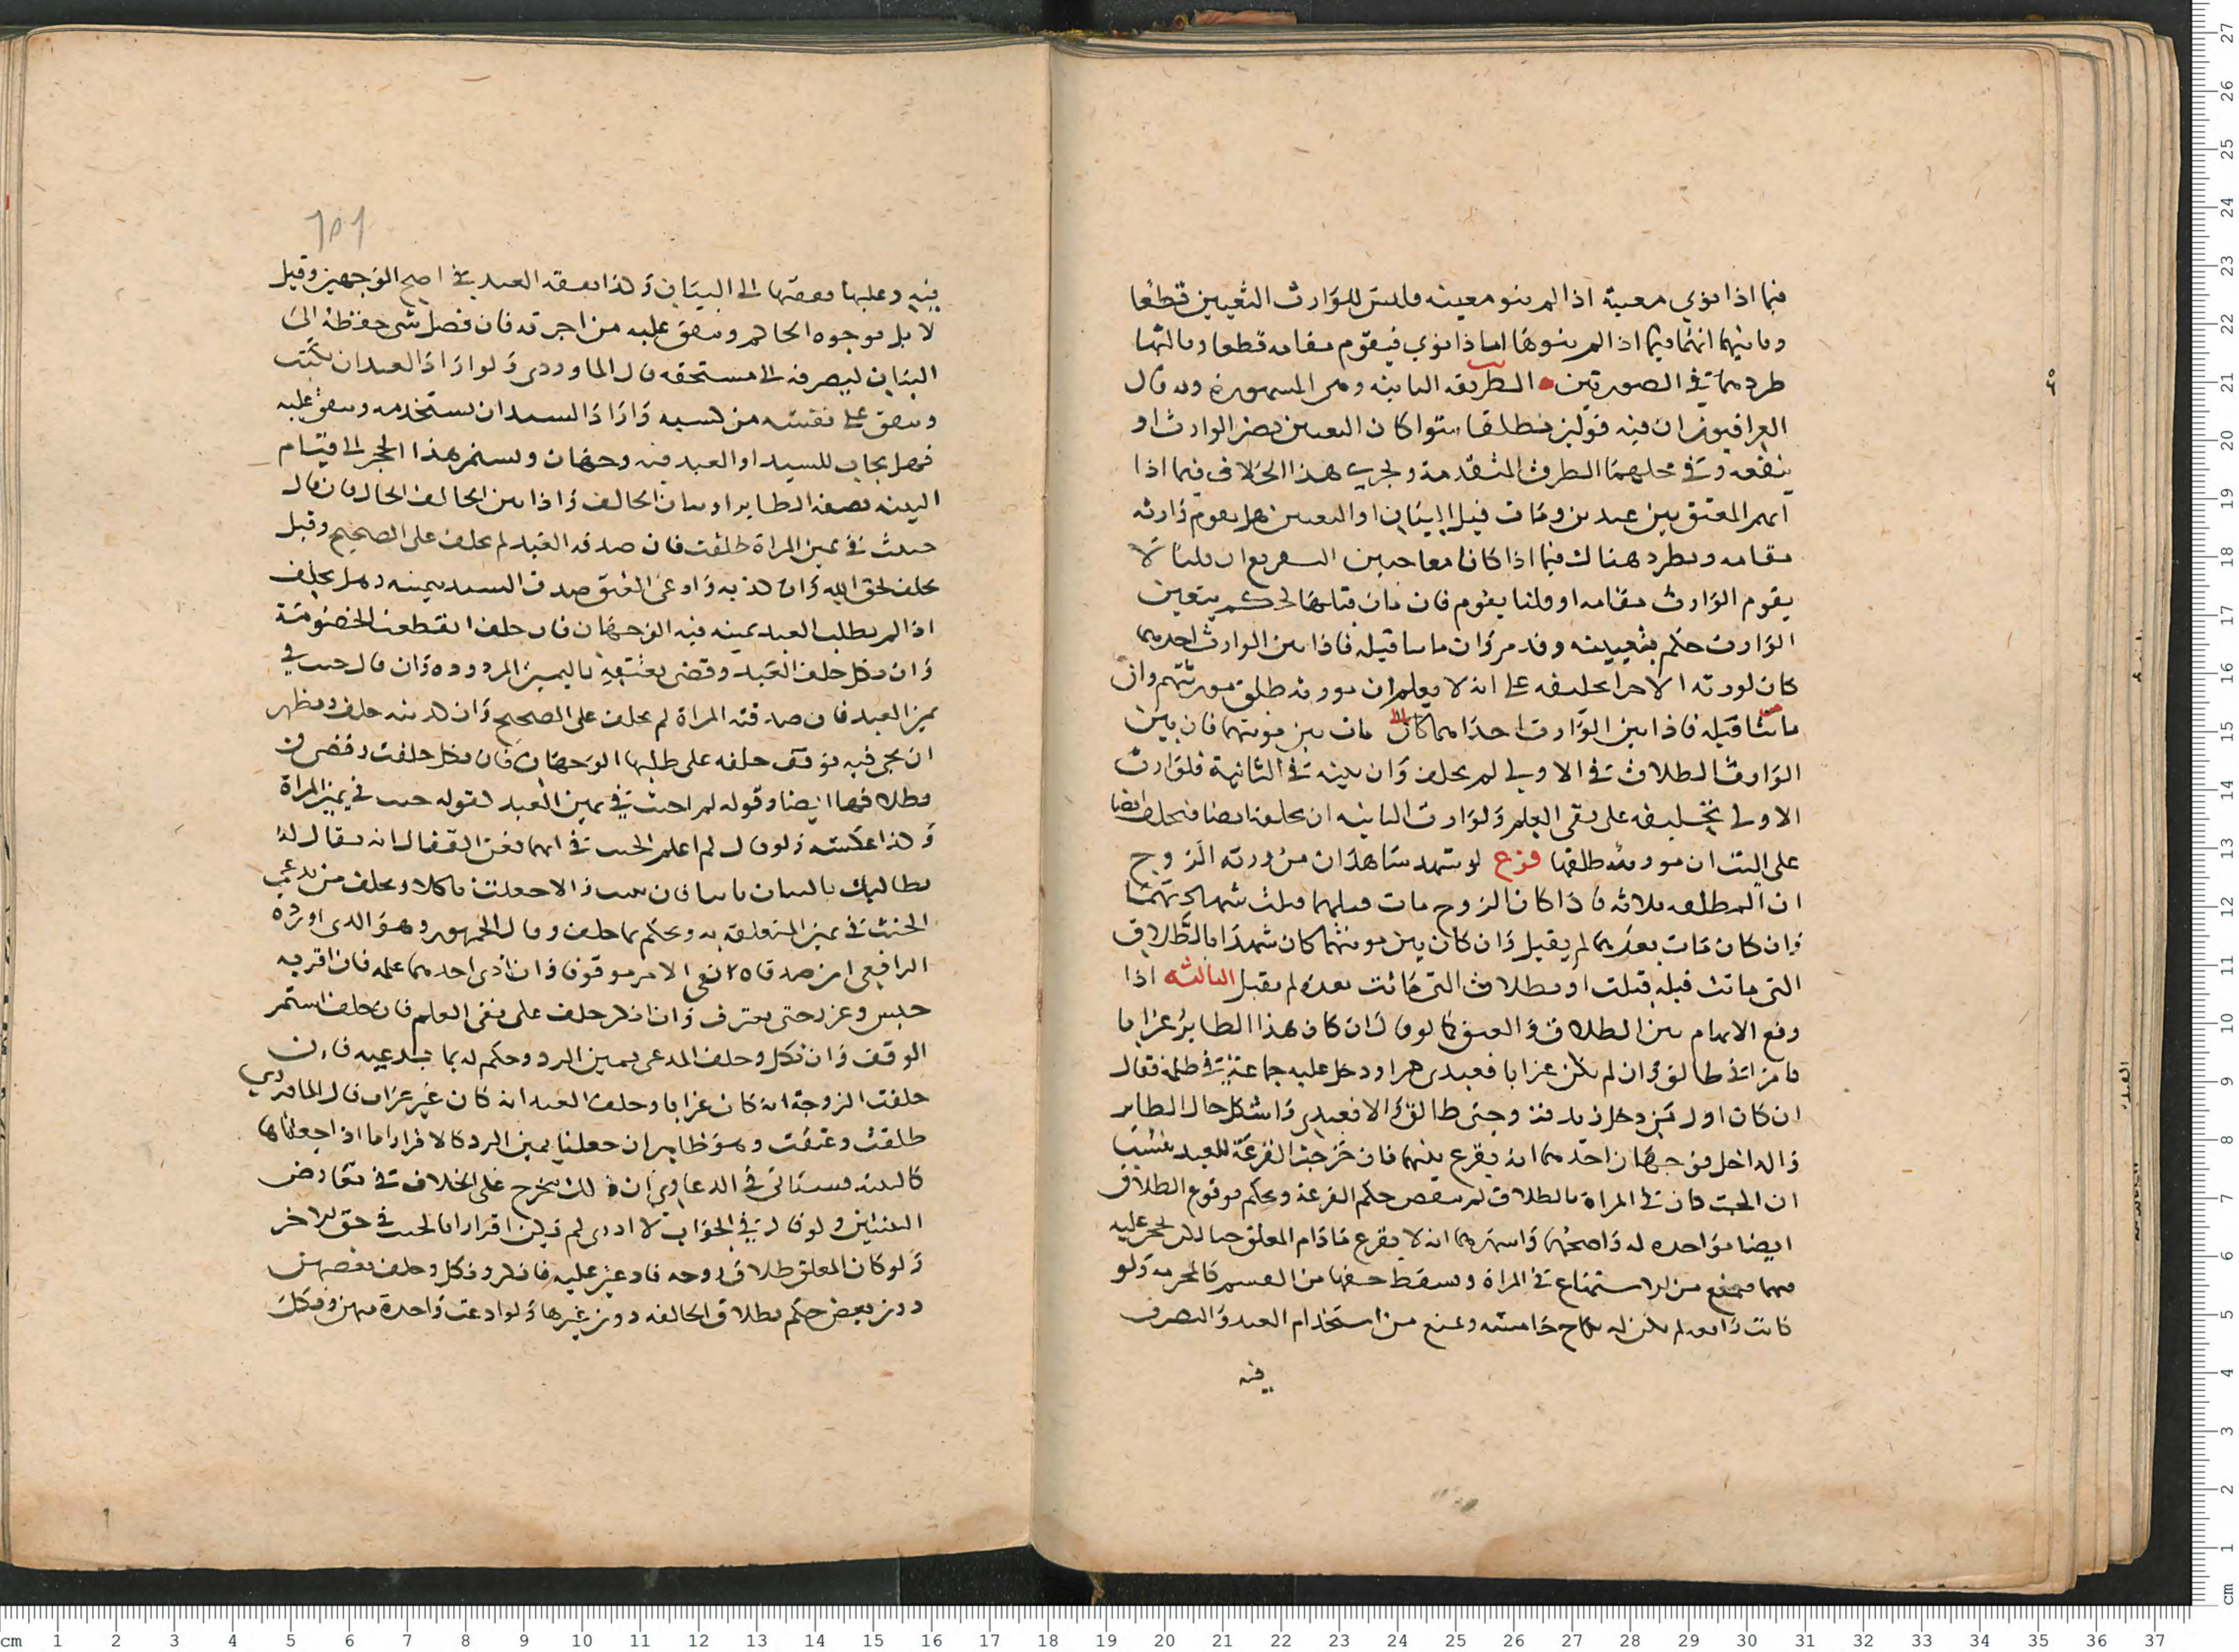 فيما اذا نوي معينة اذا لم ينو معينه فليس للوارث التعيين قطعا
وثانيهما انهما فيما اذا لم ينوها اما اذا نوي فيقوم مقامه قطعا وثالثها
طردهما في الصورتين الطريقه الثانيه وهي المشهورة وبه قال
العراقيون ان فيه قولين مطلقا سوا كان التعيين يضر الوارث او
ينفعه وفي محلهما الطرق المتقدمة ويجري هذا الخلاف فيما اذا
ابهم العتق بين عبدين ومات قبل البيان او التعيين هل يقوم وارثه
مقامه ويطرد هناك فيما اذا كانا معا حيين التفريع ان قلنا لا
يقوم الوارث مقامه او قلنا يقوم فان مات قبلهما لحكم بتعيين
الوارث حكم بتعيينه وقد مر وان ماتتا قبله فاذا بين الوارث احديهما
كان لورثه الاخري تحليفه على انه لا يعلم ان مورثه طلق مورثتهم وان
ماتتا قبله فاذا بين الوارث احداهما كان مات بين موتهما فان بين
الوارث الطلاق في الاولى لم يحلف وان بينه في الثانية فلوارث
الاولى تحليفه على نفي العلم ولوارث الثانيه ان يحلفه ايضا فيحلف ايضا
على البت ان مورثه طلقها فرع لو شهد شاهدان من ورثه الزوج
ان المطلقه فلانه فاذا كان الزوج مات قبلهما قبلت شهادتهما
وان كان مات بعدهما لم يقبل وان كان بين موتهما كان شهدا بالطلاق
التى ماتت قبله قبلت او بطلاق التى ماتت بعده لم يقبل الثالثه اذا
وقع الابهام بين الطلاق والعتق كما لو قال ان كان هذا الطاير غرابا
فامراتي طالق وان لم يكن غرابا فعبدي حر او دخل عليه جماعة في ظلمة فقال
ان كان اول من دخل زيد فزوجتى طالق والا فعبدي واشكل حال الطاير
والداخل فوجهان احدهما انه يقرع بينهما فان خرجت القرعة للعبد
ان الحنث كان في المراة بالطلاق لم ينقض حكم القرعة وحكم بوقوع الطلاق
ايضا مواخده له واصحهما واشهرهما انه لا يقرع مادام المعلق حيا لكن يحجر عليه
فيهما فيمنع من الاستمتاع في المراة ويسقط حقها من القسم كالمحرمه ولو
كانت رابعه لم يكن له نكاح خامسه ويمنع من استخدام العبد والتصرف
فيه
فيه وعليه نفقتها الى البيان وكذا نفقه العبد في اصح الوجهين وقيل
لا بل يوجره الحاكم وينفق عليه من اجرته فان فضل شي حفظه الى
البيان ليصرفه الى مستحقه قال الماوردى ولو اراد العبد ان يكتسب
وينفق على نفسه من كسبه واراد السيد ان يستخدمه وينفق عليه
فهل يجاب للسيد او العبد فيه وجهان ويستمر هذا الحجر الى قيام
البينه بصفه الطاير او بيان الحالف واذا بين الحالف الحال فان قال
حنثت في يمين المراة طلقت فان صدقه العبد لم يحلف على الصحيح وقيل
يحلف لحق الله وان كذبه وادعى العتق صدق السيد بيمينه وهل يحلف
اذا لم يطلب العبد يمينه فيه الوجهان فان حلف انقطعت الخصومة
وان نكل حلف العبد وقضى بعتقه باليمين المردوده وان قال حنث في
يمين العبد فان صدقته المراة لم يحلف على الصحيح وان كذبته حلف ويظهر
ان يجي فيه توقف حلفه على طلبها الوجهان فان نكل حلفت وقضي
بطلاقها ايضا وقوله لم احنث في يمين العبد كقوله حنث في يمين المراة
وكذا عكسه ولو قال لم اعلم الحنث في ايهما فعن القفال انه يقال له
يطالبك بالبيان فان بينت والا جعلت ناكلا ويحلف من يدعي
الحنث في يمين المتعلقه به ويحكم بما حلف وقال الجمهور وهو الذي اورده
الرافعي ان صدقاه بقي الامر موقوفا وان ادعى احدهما علمه فان اقر به
حبس وعزر حتى يعترف وان انكر حلف على نفي العلم فان حلف استمر
الوقف وان نكل وحلف المدعى يمين الرد وحكم له بما يدعيه فان
حلفت الزوجة انه كان غرابا وحلف العبد انه كان غير غراب قال الماوردي
طلقت وعتقت وهو ظاهر ان جعلنا يمين الرد كالاقرار اما اذا جعلناها
كالبينه فسياتى في الدعاوي ان ذلك يخرج على الخلاف في تعارض
البينتين ولو قال في الجواب لا ادرى لم يكن اقرارا بالحنث في حق الاخر
ولو كان المعلق طلاق زوجه فادعين عليه فانكر ونكل وحلف بعضهن
دون بعض حكم بطلاق الحالفه دون غيرها ولو ادعت واحدة منهن ونكل